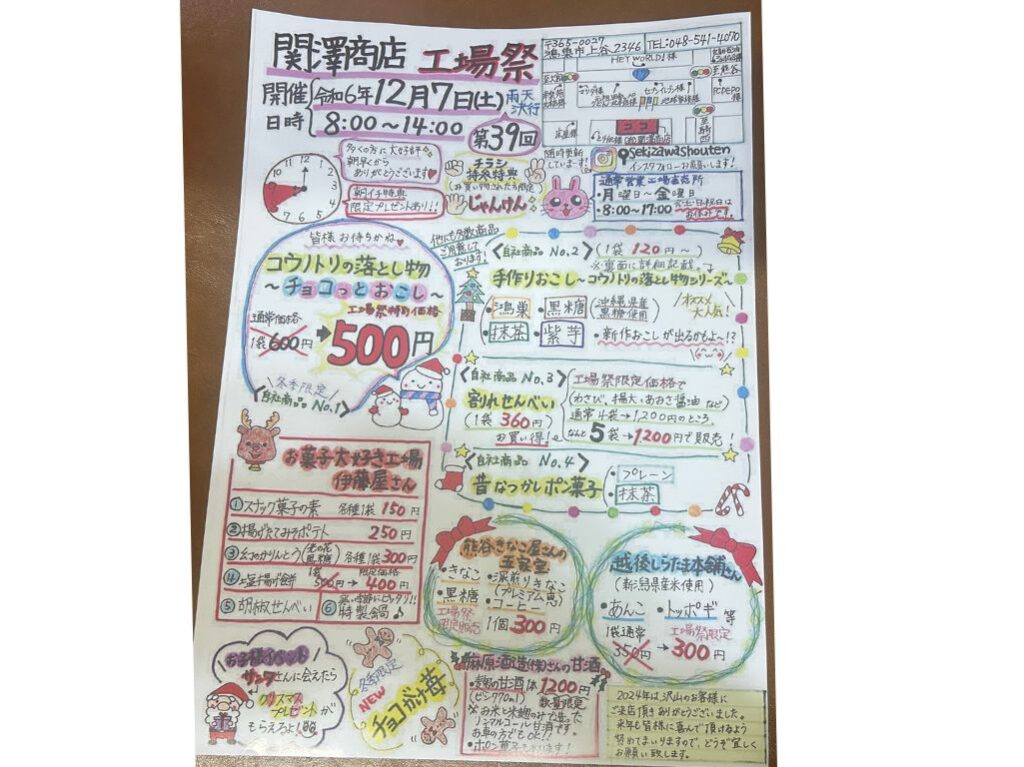 関澤商店 工場祭
開催日時
令和6年12月7日(土) 雨天決行
8:00～14:00
第39回
〒365-0027
鴻巣市上谷2346
TEL:048-541-4070
HEY WORLD1様
至熊谷
ココ
多くの方に大好評
朝早くから
ありがとうございます♥
朝イチ特典
限定プレゼントあり!!
チラシ
持参特典
じゃんけん
随時更新
しています!
sekizawashouten
インスタフォローお願いします!
通常営業工場直売所
・月曜日～金曜日
・8:00～17:00
お休みです。
皆様お待ちかね♥
コウノトリの落とし物
～チョコっとおこし～
工場祭特別価格
通常価格
1袋600円→500円
冬季限定
〈自社商品No.1〉
他にも多数商品
ご用意して
おります!
〈自社商品 No.2〉(1袋120円～)
※裏面に詳細記載。
手作りおこし～コウノトリの落とし物シリーズ～
・鴻巣 ・黒糖(沖縄県産黒糖使用)
オススメ
大人気!
・抹茶 ・紫芋 ・新作おこしが出るかもよ～!?
〈自社商品 No.3〉
割れせんべい
(1袋 360円)
お買い得!
工場祭限定価格で
(わさび、揚大、あおさ醤油など)
通常4袋→1200円のところ、
なんと5袋→1200円で販売!
〈自社商品 No.4〉
昔なつかしポン菓子
・プレーン
・抹茶
お菓子大好き工場
伊藤屋さん
①スナック菓子の素 各種1袋 150円
②揚げたてみそポテト 250円
③幻のかりんとう 各種1袋300円
④塩揚げ餅 1袋500円→限定価格400円
⑤胡椒せんべい
⑥特製鍋♪
熊谷きなこ屋さんの
五家宝
・きなこ ・深煎りきなこ
・黒糖 (プレミアム恵)
・コーヒー
工場祭
1個300円
越後しらたま本舗さん
(新潟県産米使用)
・あんこ ・トッポギ 等
1袋通常
350円→工場祭限定300円
お子様イベント
サンタさんに会えたら
クリスマス
プレゼントが
もらえるよ!
冬季限定
NEW
チョコがけ苺
麻原酒造(株)さんの甘酒
甘酒 1本1200円
(ビン770ml) 数量限定
お米と米麹のみで造った
ノンアルコール甘酒です。
お車の方でもOK!!
2024年は沢山のお客様に
ご来店頂きありがとうございました。
来年も皆様に喜んで頂けるよう
努めてまいりますので、どうぞ宜しく
お願い致します。